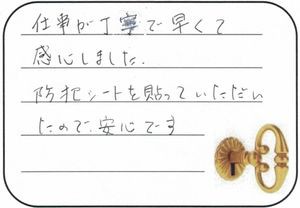 仕事が丁寧で早くて
感心しました.
防犯シートを貼っていただい
たので、安心です